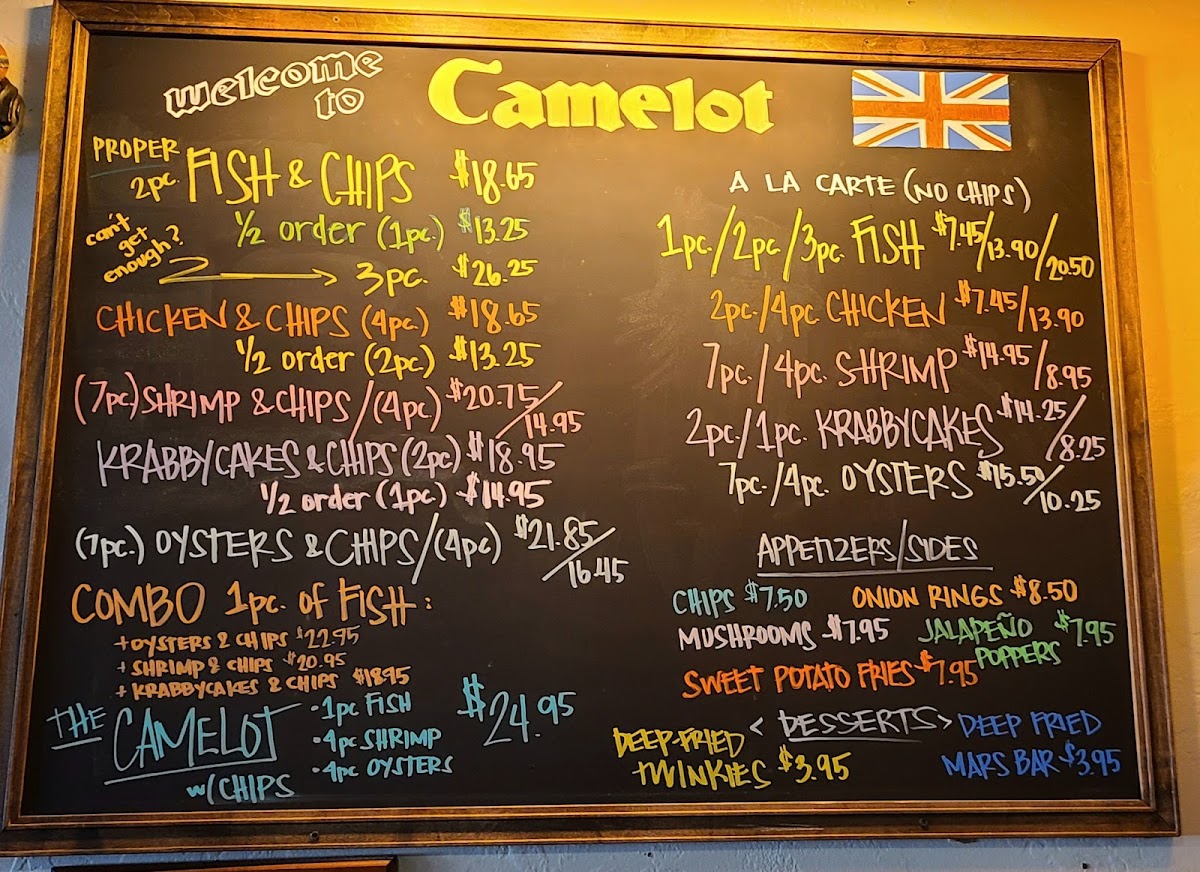 welcome to Camelot
PROPER
2pc. FISH & CHIPS $18.65
1/2 order (1pc.) $13.25
can't get enough?
3pc. $26.25
CHICKEN & CHIPS (4pc.) $18.65
1/2 order (2pc) $13.25
(7pc) SHRIMP & CHIPS/(4pc) $20.75/14.95
KRABBYCAKES & CHIPS (2pc) $18.95
1/2 order (1pc.) $14.95
(7pc.) OYSTERS & CHIPS/(4pc) $21.85/16.45
COMBO 1pc. of FISH:
+ OYSTERS & CHIPS $22.95
+ SHRIMP & CHIPS $20.95
+ KRABBYCAKES & CHIPS $18.95
THE CAMELOT w/ CHIPS $24.95
• 1pc FISH
• 4pc SHRIMP
• 4pc OYSTERS
A LA CARTE (NO CHIPS)
1pc./2pc/3pc. FISH $7.45/13.90/20.50
2pc./4pc. CHICKEN $7.45/13.90
7pc./4pc. SHRIMP $14.95/8.95
2pc./1pc. KRABBYCAKES $14.25/8.25
7pc./4pc. OYSTERS $15.50/10.25
APPETIZERS/SIDES
CHIPS $7.50 ONION RINGS $8.50
MUSHROOMS $7.95 JALAPEÑO POPPERS $7.95
SWEET POTATO FRIES $7.95
< DESSERTS >
DEEP-FRIED TWINKIES $3.95
DEEP FRIED MARS BAR $3.95